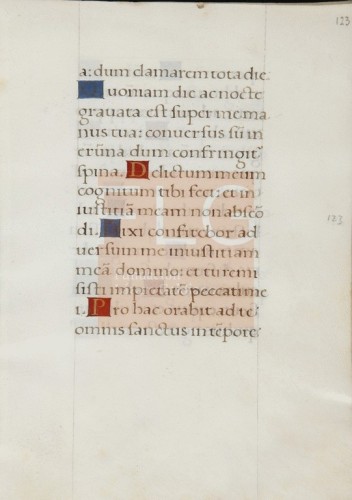 123
a: dum clamarem tota die.
Quoniam die ac nocte
grauata est super me ma
nus tua: conuersus sũ in
erũna dum confringit̃
spina. Delictum meum
cognitum tibi feci: et in
iustitiã meam non abscõ
di. Dixi confitebor ad
uersum me iniustitiam
meã domino: et tu remi
sisti impietatẽ peccati me
i. Pro hac orabit ad te
omnis sanctus in tẽpore
103
FLG